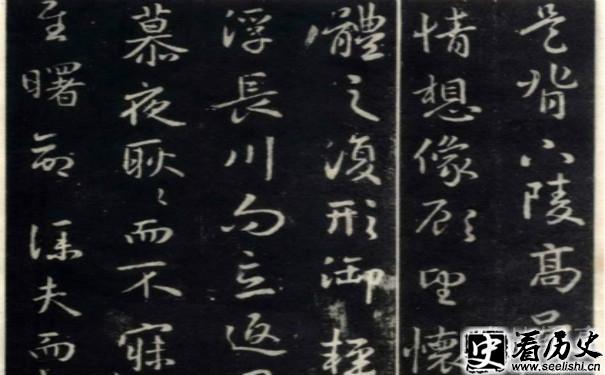 是背下陵高
情想像顧望懷
體之復形御輕
浮長川而忘返
慕夜耿々而不寐
至曙命僕夫而
史 看历史
www.seelishi.cn